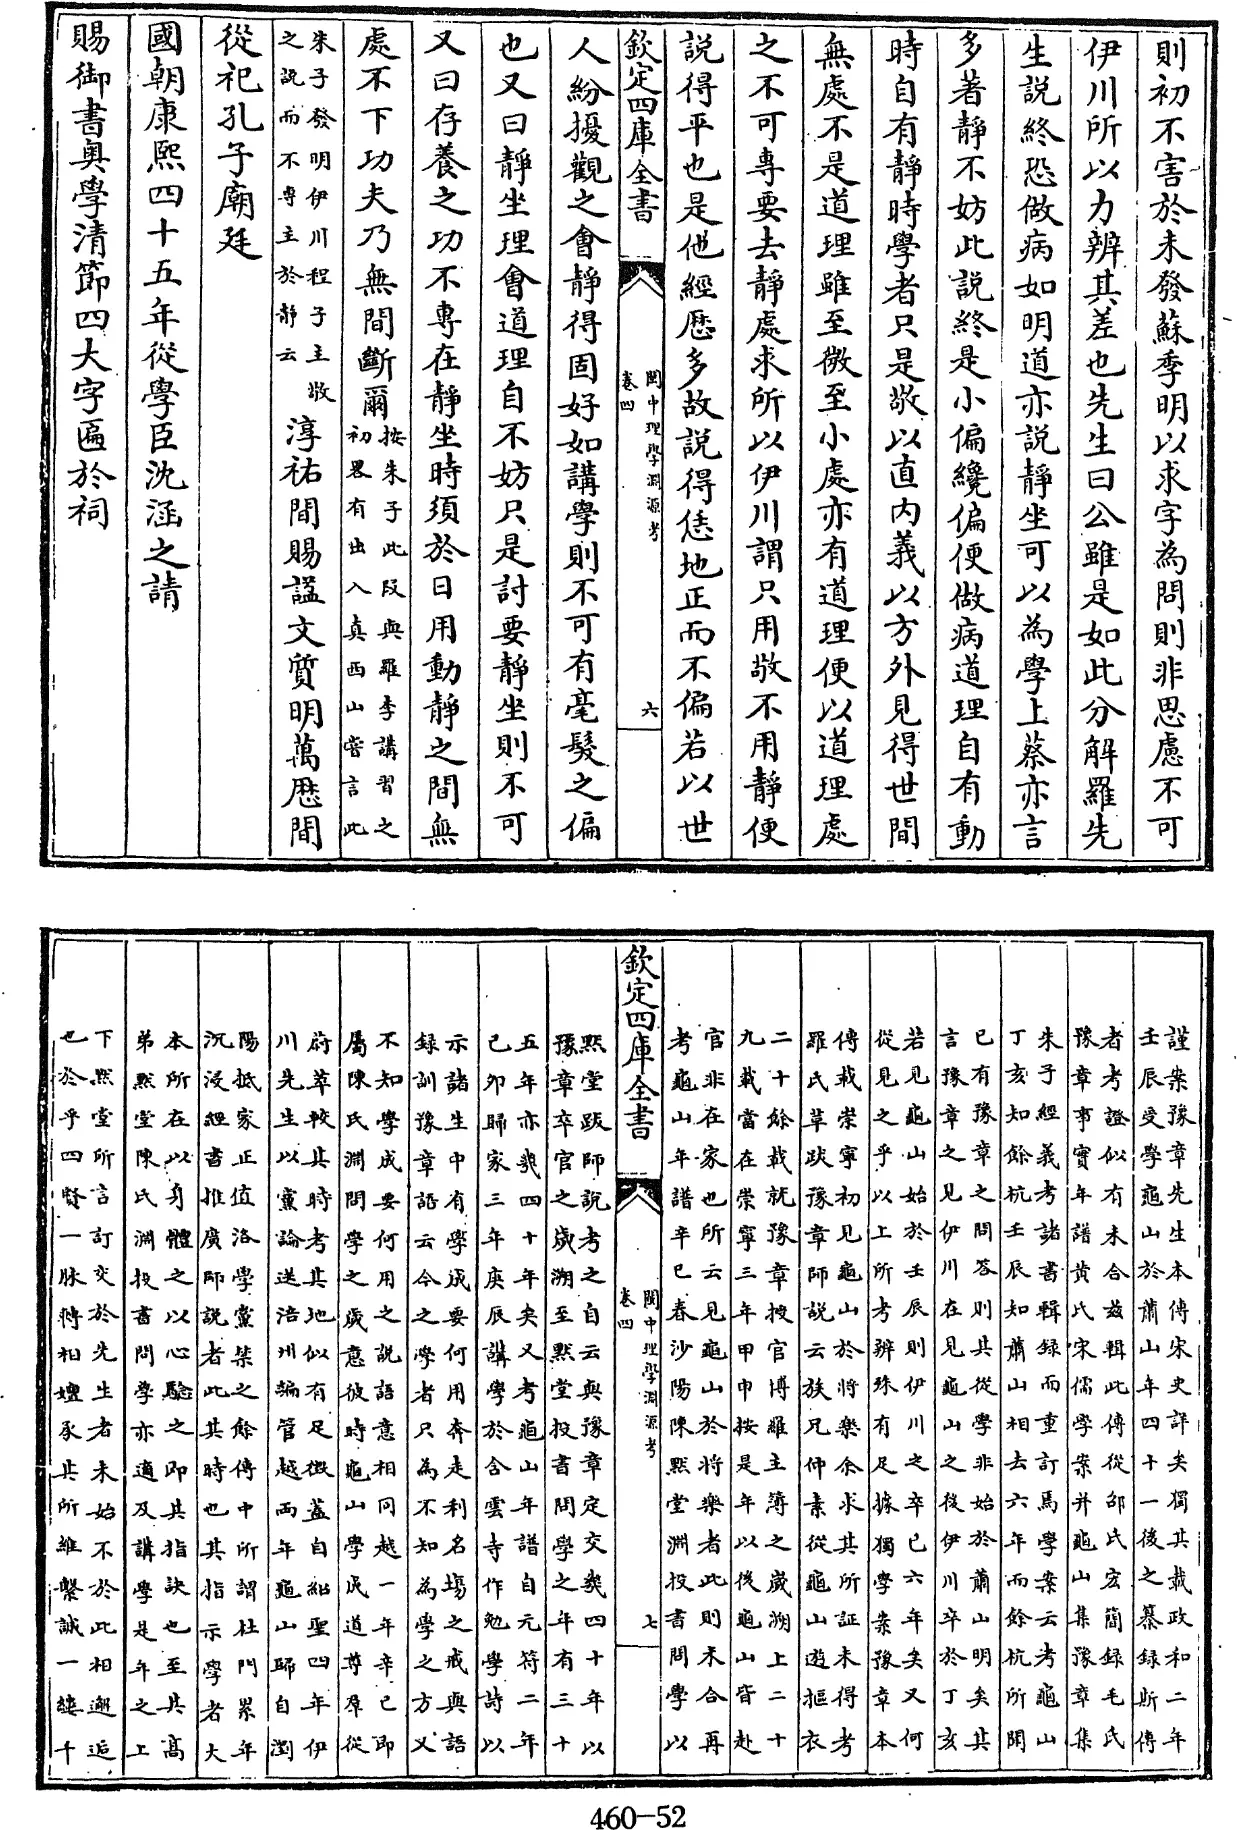 則初不害於未發蘇季明以求字為問則非思慮不可
伊川所以力辨其差也先生曰公雖是如此分解羅先
生說終恐做病如明道亦說靜坐可以為學上蔡亦言
多著靜不妨此說終是小偏纔偏便做病道理自有動
時自有靜時學者只是敬以直內義以方外見得世間
無處不是道理雖至微至小處亦有道理便以道理處
之不可專要去靜處求所以伊川謂只用敬不用靜便
說得平也是他經歷多故說得恁地正而不偏若以世
欽定四庫全書
閩中理學淵源考
卷四
六
人紛擾觀之會靜得固好如講學則不可有毫髮之偏
也又曰靜坐理會道理自不妨只是討要靜坐則不可
又曰存養之功不專在靜坐時須於日用動靜之間無
處不下功夫乃無間斷爾
按朱子此段與羅李講習之
初畧有出入真西山嘗言此
朱子發明伊川程子主敬
之説而不專主於靜云
淳祐間賜諡文質明萬歷間
從祀孔子廟廷
國朝康熙四十五年從學臣沈涵之請
賜御書奥學清節四大字匾於祠
謹案豫章先生本傳宋史詳矣獨其載政和二年
壬辰受學龜山於蕭山年四十一後之纂録斯傳
者考證似有未合茲輯此傳從邵氏宏簡録毛氏
豫章事實年譜黄氏宋儒學案并龜山集豫章集
朱子經義考諸書輯録而重訂馬學案云考龜山
丁亥知餘杭壬辰知蕭山相去六年而餘杭所聞
已有豫章之問答則其從學非始於蕭山明矣其
言豫章之見伊川在見龜山之後伊川卒於丁亥
若見龜山始於壬辰則伊川之卒已六年矣又何
從見之乎以上所考辨殊有足據獨學案豫章本
傳載崇寧初見龜山於將樂余求其所証未得考
羅氏草跋豫章師說云族兄仲素從龜山遊摳衣
二十餘載就豫章授官博羅主簿之歲溯上二十
九載當在崇寧三年甲申按是年以後龜山皆赴
官非在家也所云見龜山於將樂者此則未合再
考龜山年譜辛巳春沙陽陳黙堂淵投書問學以
欽定四庫全書
閩中理學淵源考
卷四
七
黙堂跋師說考之自云與豫章定交幾四十年以
豫章卒官之歲溯至黙堂投書問學之年有三十
五年亦幾四十年矣又考龜山年譜自元符二年
己卯歸家三年庚辰講學於含雲寺作勉學詩以
示諸生中有學成要何用奔走利名塲之戒與語
録訓豫章語云今之學者只為不知為學之方又
不知學成要何用之說語意相同越一年辛巳即
屬陳氏淵問學之歲意彼時龜山學成道尊羣從
蔚萃較其時考其地似有足徴蓋自紹聖四年伊
川先生以黨論送涪州編管越兩年龜山歸自瀏
陽抵家正值洛學黨禁之餘傳中所謂杜門累年
沉浸經書推廣師說者此其時也其指示學者大
本所在以身體之以心驗之即其指訣也至其高
弟黙堂陳氏淵投書問學亦適及講學是年之上
下黙堂所言訂交於先生者未始不於此相邂逅
也於乎四賢一脉將相嬗承其所維繫誠一縷千
460-52